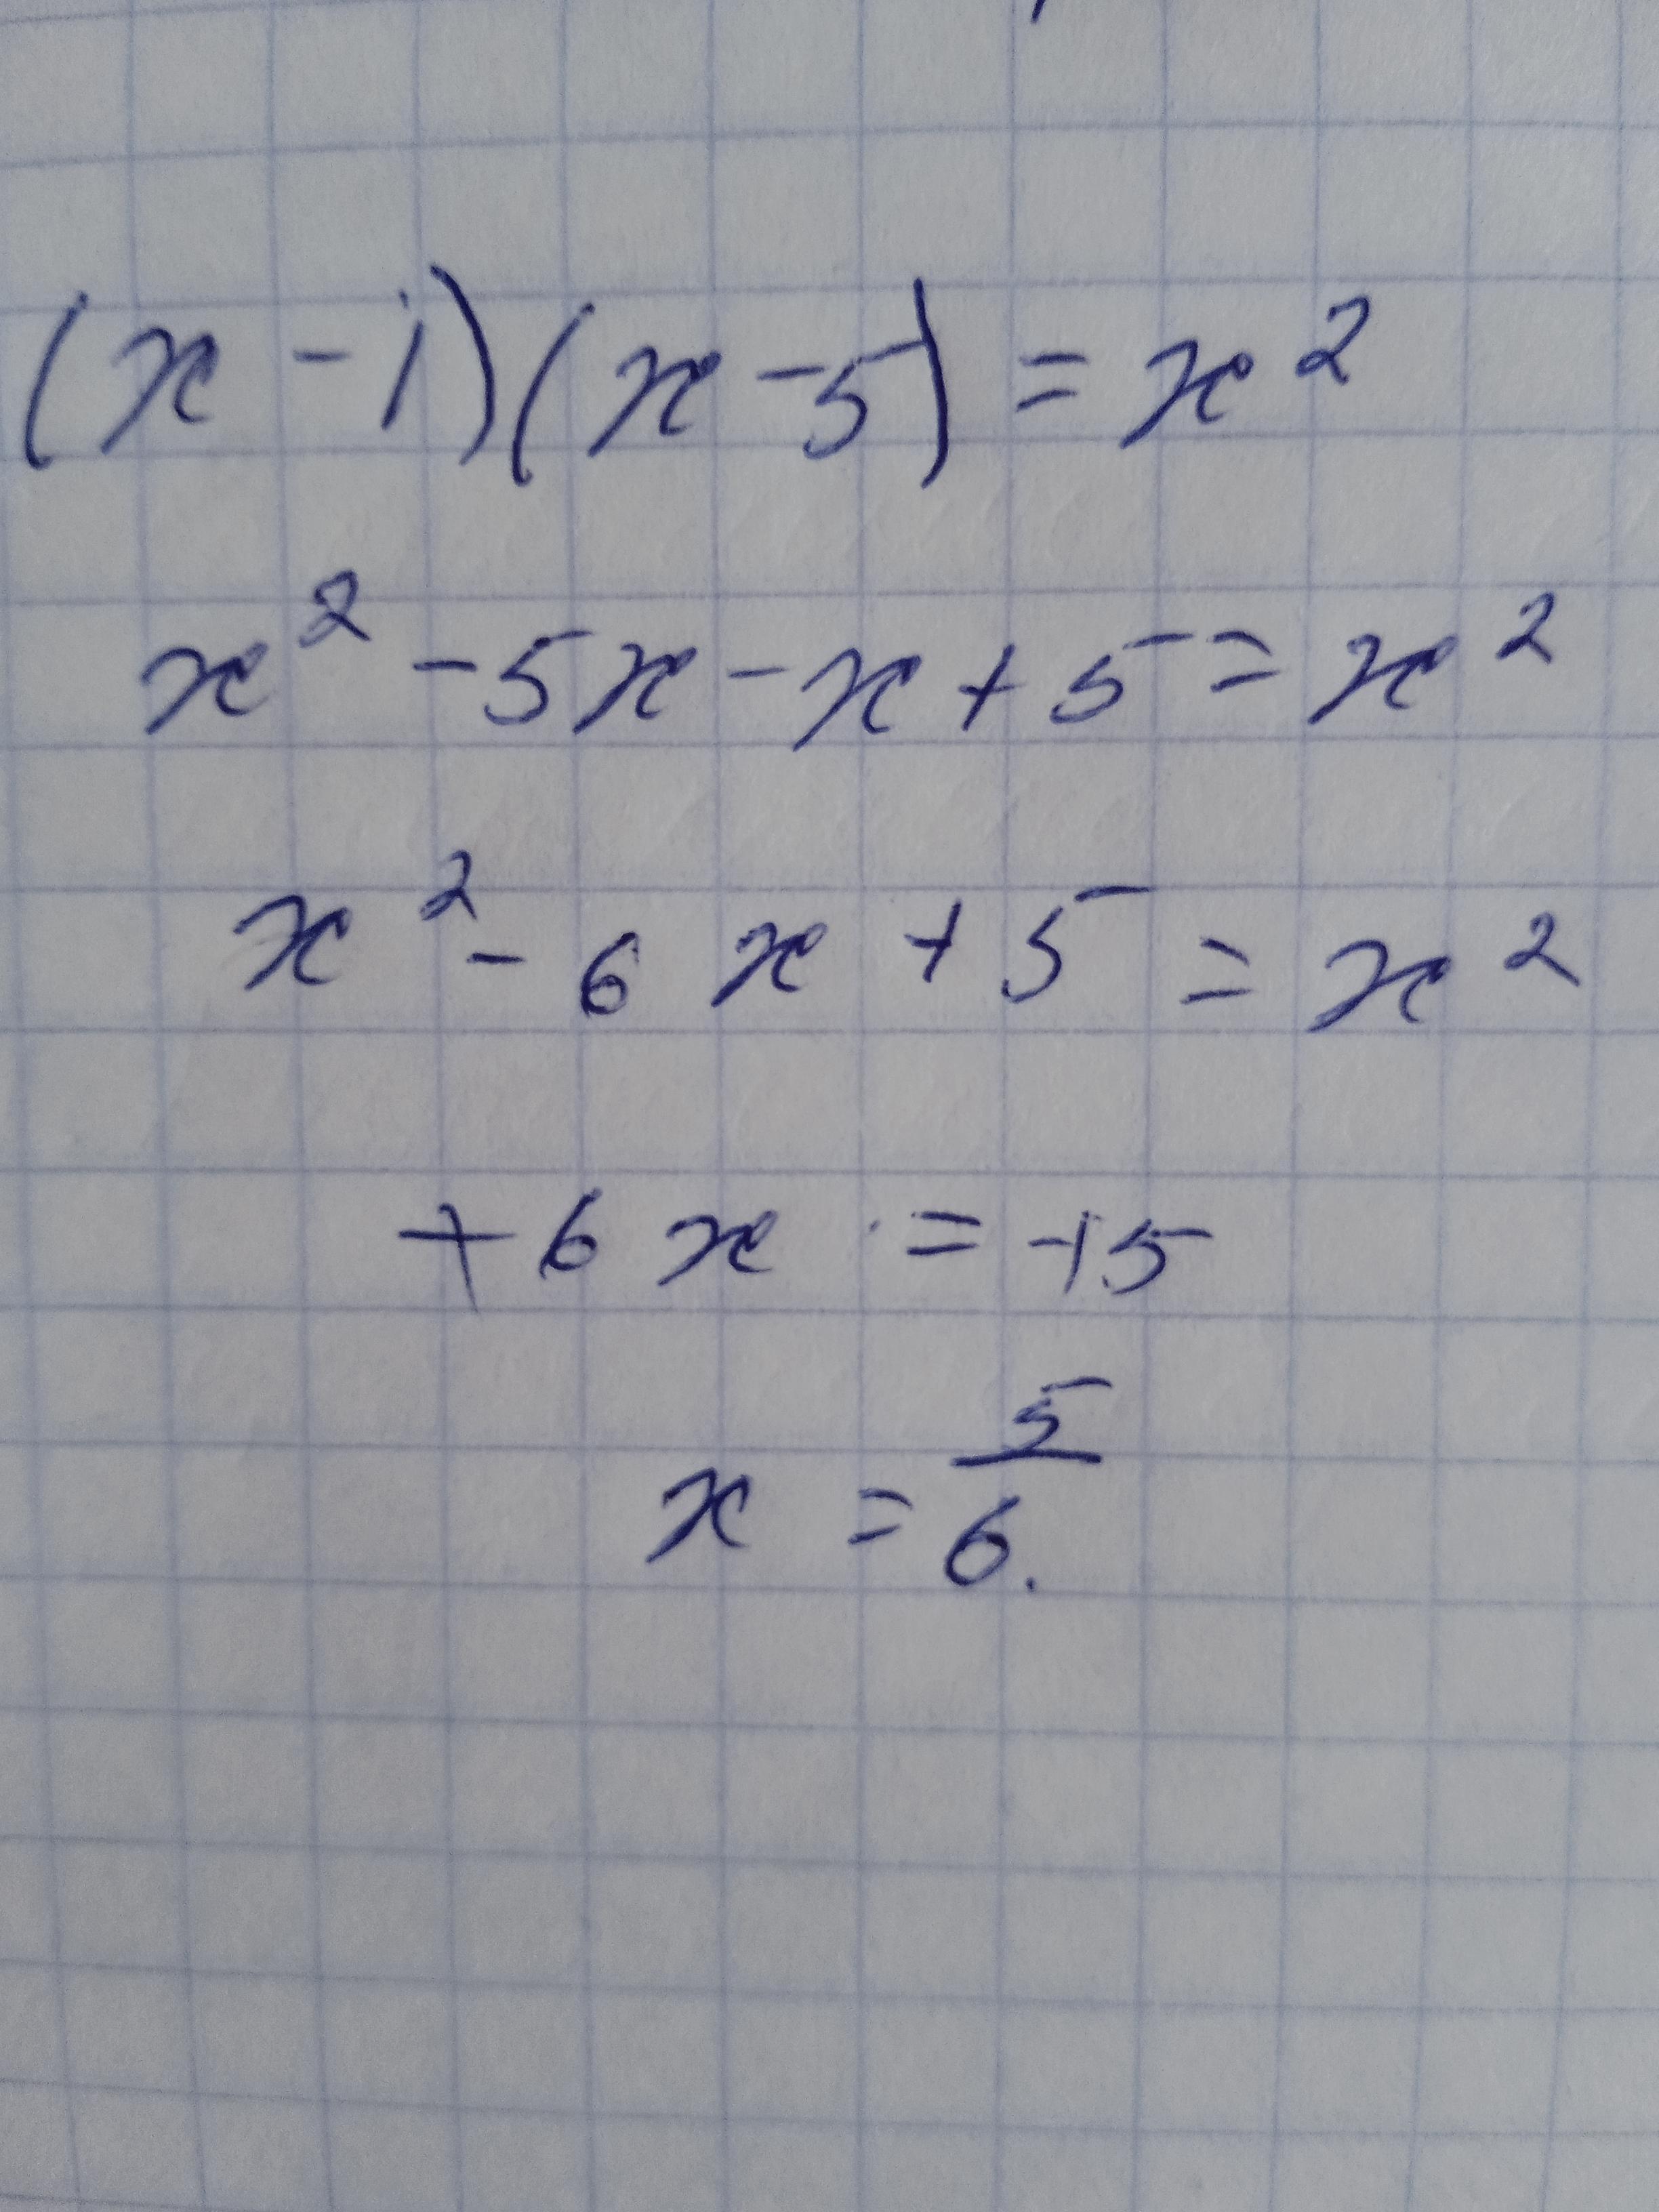 (x - 1)(x - 5) = x²
x² - 5x - x + 5 = x²
x² - 6x + 5 = x²
+ 6x = +5
x = 5/6.